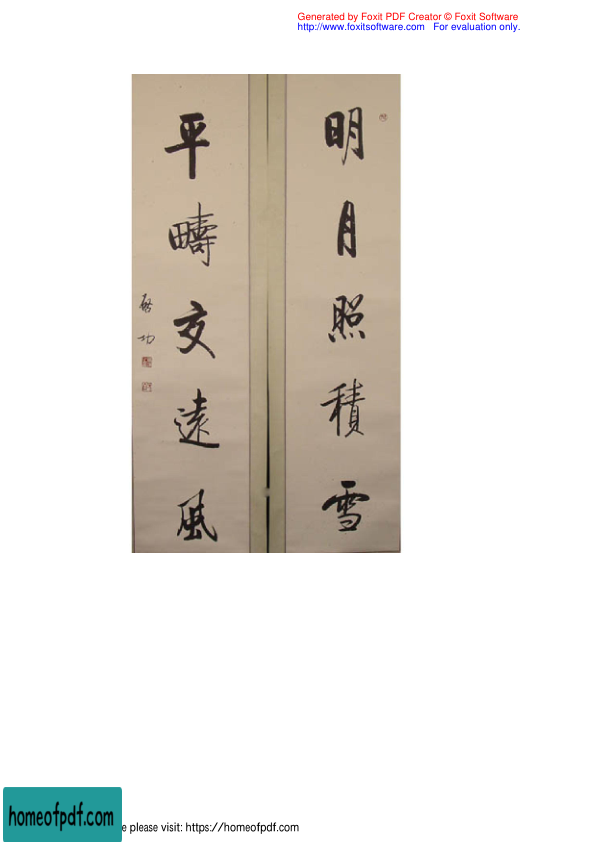 Generated by Foxit PDF Creator © Foxit Software
http://www.foxitsoftware.com For evaluation only.
明月照積雪
平疇交遠風
啟功
homeofpdf.com
e please visit: https://homeofpdf.com